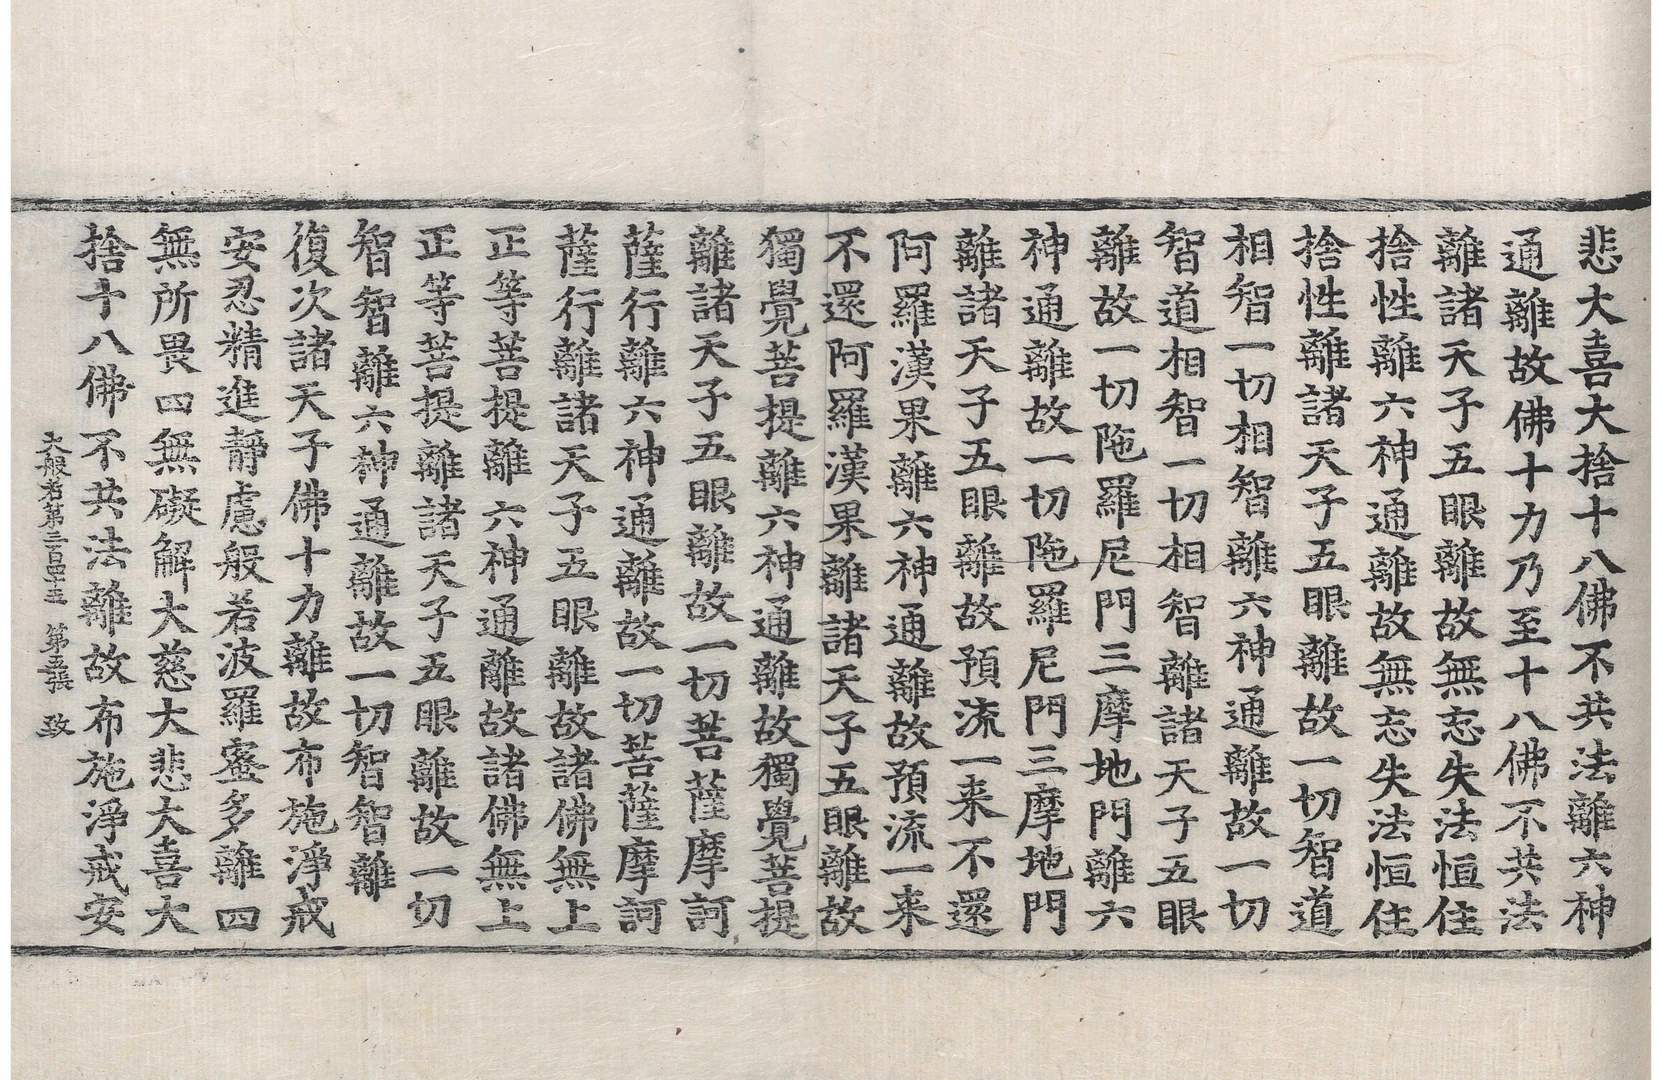 悲大喜大捨十八佛不共法離六神
通離故佛十力乃至十八佛不共法
離諸天子五眼離故無忘失法恒住
捨性離六神通離故無忘失法恒住
捨性離諸天子五眼離故一切智道
相智一切相智離六神通離故一切
智道相智一切相智離諸天子五眼
離故一切陁羅尼門三摩地門離六
神通離故一切陁羅尼門三摩地門
離諸天子五眼離故預流一来不還
阿羅漢果離六神通離故預流一来
不還阿羅漢果離諸天子五眼離故
獨覺菩提離六神通離故獨覺菩提
離諸天子五眼離故一切菩薩摩訶
薩行離六神通離故一切菩薩摩訶
薩行離諸天子五眼離故諸佛無上
正等菩提離六神通離故諸佛無上
正等菩提離諸天子五眼離故一切
智智離六神通離故一切智智離
復次諸天子佛十力離故布施淨戒
安忍精進靜慮般若波羅蜜多離四
無所畏四無礙解大慈大悲大喜大
捨十八佛不共法離故布施淨戒安
大般若第二百四十五 第五張 致